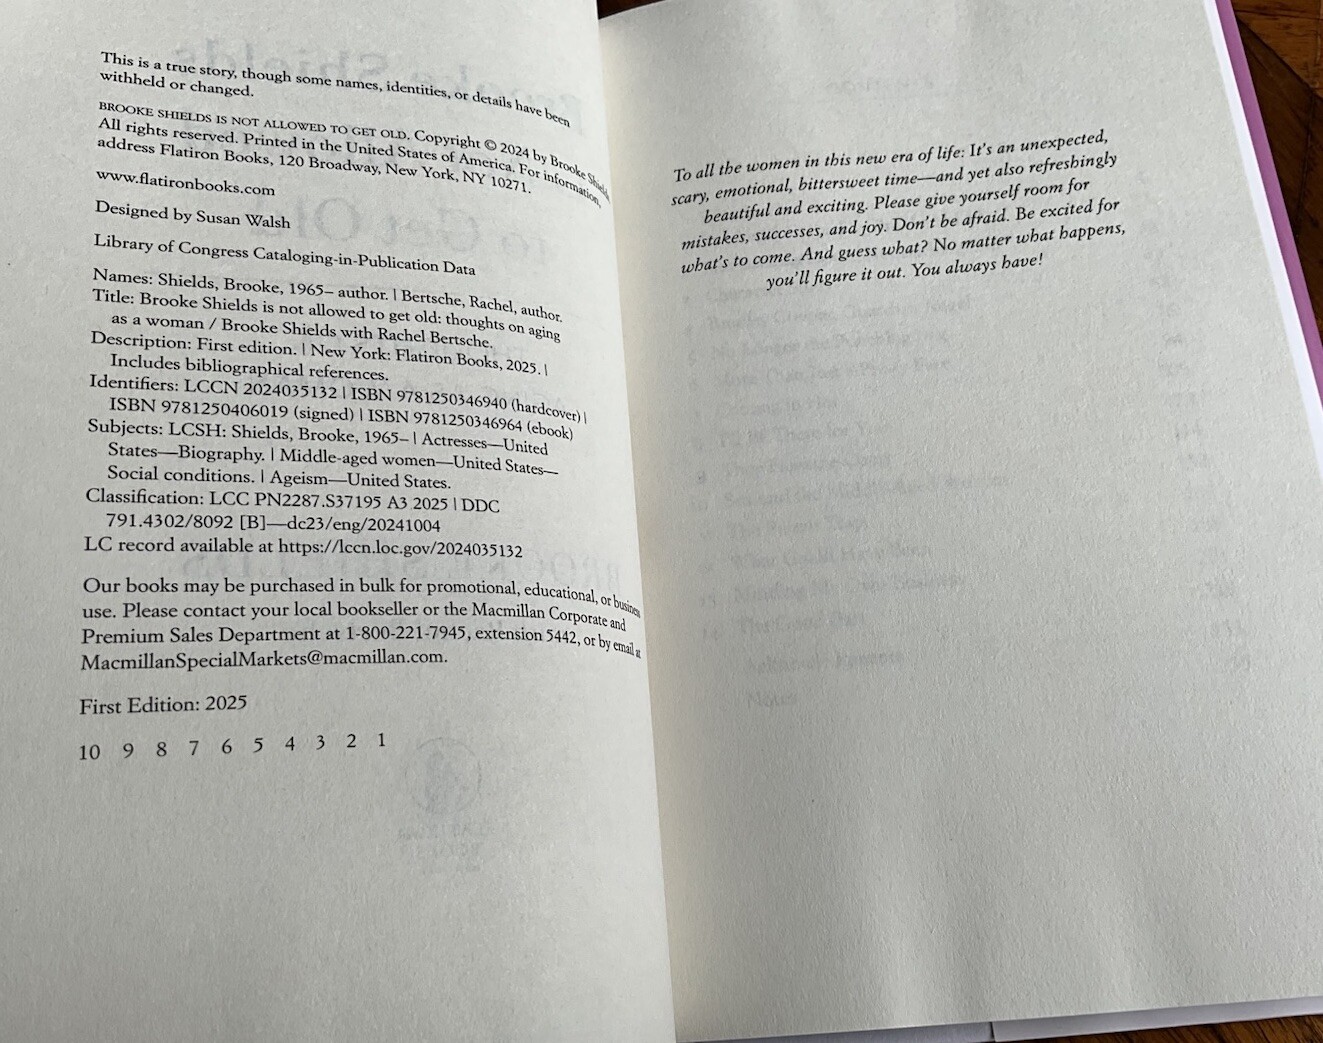 This is a true story, though some names, identities, or details have been
withheld or changed.
BROOKE SHIELDS IS NOT ALLOWED TO GET OLD. Copyright © 2024 by Brooke Shields.
All rights reserved. Printed in the United States of America. For information,
address Flatiron Books, 120 Broadway, New York, NY 10271.
www.flatironbooks.com
Designed by Susan Walsh
Library of Congress Cataloging-in-Publication Data
Names: Shields, Brooke, 1965– author. | Bertsche, Rachel, author.
Title: Brooke Shields is not allowed to get old: thoughts on aging
as a woman / Brooke Shields with Rachel Bertsche.
Description: First edition. | New York: Flatiron Books, 2025. |
Includes bibliographical references.
Identifiers: LCCN 2024035132 | ISBN 9781250346940 (hardcover) |
ISBN 9781250406019 (signed) | ISBN 9781250346964 (ebook)
Subjects: LCSH: Shields, Brooke, 1965– | Actresses—United
States—Biography. | Middle-aged women—United States—
Social conditions. | Ageism—United States.
Classification: LCC PN2287.S37195 A3 2025 | DDC
791.4302/8092 [B]—dc23/eng/20241004
LC record available at https://lccn.loc.gov/2024035132
Our books may be purchased in bulk for promotional, educational, or business
use. Please contact your local bookseller or the Macmillan Corporate and
Premium Sales Department at 1-800-221-7945, extension 5442, or by email at
MacmillanSpecialMarkets@macmillan.com.
First Edition: 2025
10 9 8 7 6 5 4 3 2 1
To all the women in this new era of life: It's an unexpected,
scary, emotional, bittersweet time—and yet also refreshingly
beautiful and exciting. Please give yourself room for
mistakes, successes, and joy. Don't be afraid. Be excited for
what's to come. And guess what? No matter what happens,
you'll figure it out. You always have!